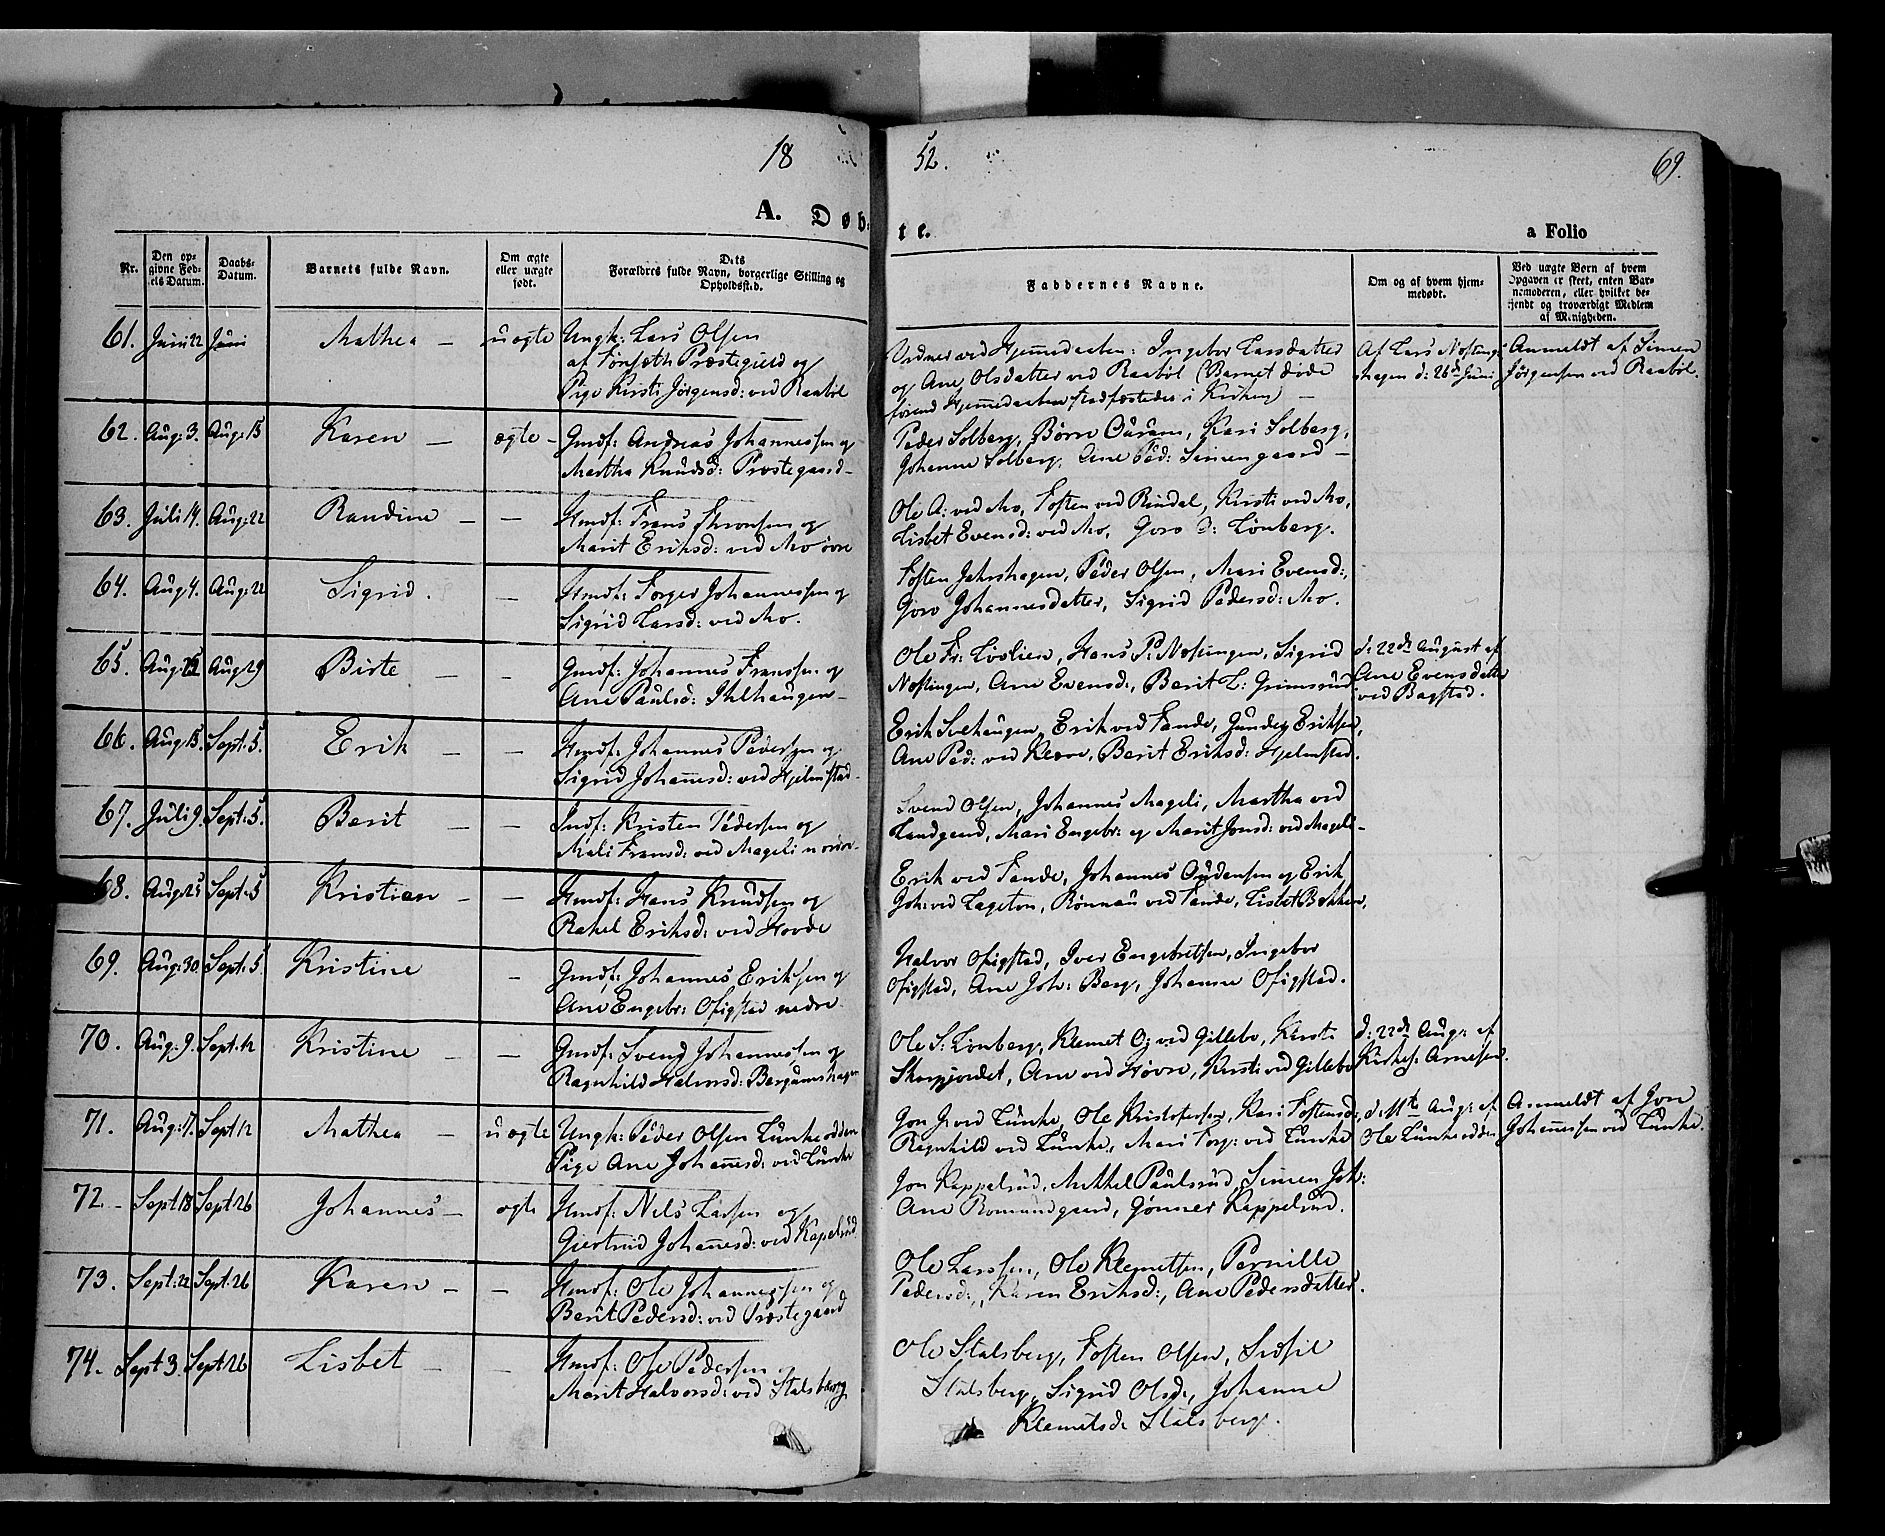 18
52.
69.
A. Døb-
te.
a Folio
Nr.
Den op-
givne Fød-
els Datum.
Daabs-
Datum.
Barnets fulde Navn.
Om ægte
eller uægte
født.
Dets
Forældres fulde Navn, borgerlige Stilling og
Opholdssted.
Faddernes Navne.
Om og af hvem hjem-
medøbt.
Ved uægte Børn af hvem
Opgaven er skeet, enten Bar-
nemoderen, eller hvilket be-
kjendt og troværdigt Medlem
af Menigheden.
61. Juni 22 Juni Mathea – uægte Ungk: Lars Olsen
af Præstegield og
Pige Kirsti Jörgensd: ved Raaböl
Vidner ved Hjemmedaaben: Ingebor Larsdatter
og Ane Olsdatter ved Raaböl (Barnet döde
förend Hjemmedaaben stadfæstedes i Kirken) –
Af Lars
d: 26de Juni
Anmeldt af Simen
Jörgensen ved Raaböl.
62. Aug: 3. Aug: 15 Karen – ægte – Gmdf: Andreas Johannessen og
Martha Knudsd: Præstegaard –
Peder Solberg, Börre, Kari Solberg,
Johanne Solberg, Ane Ped: Simengaard –
63. Juli 14. Aug: 22 Randine – – Hmdf: Frans og
Marit Eriksd: ved Mo övre
Ole A: ved Mo, Tosten ved Rindal, Kirsti ved Mo,
Lisbet Evensd: ved Mo, Goro Lönberg.
64. Aug 4. Aug: 22 Sigrid. – Hmdf: Torger Johannessen og
Sigrid Larsd: ved Mo.
Tosten Jahrshagen, Peder Olsen, Mari Evensd:,
Goro Johannesdatter, Sigrid Pedersd: Mo.
65. Aug: Aug 29 Birte – – Gmdf: Johannes Franssen og
Ane Paulsd: Ihlhaugen –
Ole Fr: Lövlien, Hans P: Nostingen, Sigrid
Nostingen, Ane Evensd:, Berit L: Grimsrud
d: 22de August af
Ane Evensdatter
ved Bagstad.
66. Aug 15. Sept: 5. Erik – – Hmdf: Johannes Pedersen og
Sigrid Johannesd: ved Hjelmstad –
Erik Svehaugen, Erik ved Tande, Eriksen,
Ane Ped: ved Kleve, Berit Eriksd: Hjelmstad.
67. Juli 9. Sept: 5. Berit – – Indf: Kristen Pedersen og
Mali Fransd: ved Mageli nordre –
Svend Olsen, Johannes Mageli, Martha ved
Landgaard, Mari Engebr: og Marit Jonsd: ved Mageli –
68. Aug: 25 Sept: 5 Kristian – – Hmdf: Hans Knudsen og
Rahel Eriksd: ved Hovde
Erik ved Tande, Johannes Audensen og Erik
Joh: ved Lageton, Rönnau ved Tande, Lisbet Bakken.
69. Aug: 30. Sept: 5 Kristine – Gmdf: Johannes Eriksen og
Ane Engebr: Ofigstad nedre
Halvor Ofigstad, Iver Engebretsen, Ingebor
Ofigstad, Ane Joh: Berg, Johanne Ofigstad.
70. Aug: 9. Sept: 12 Kristine – – Gmdf: Svend Johannessen og
Ragnhild Halvorsd: Bergumshagen
Ole S: Lönberg, Klemet O: ved Gillebo, Kirsti
Skarpjordet, Ane ved Hovre, Kirsti ved Gillebo
d: 22de Aug: af
Kirkes: Arnesen.
71. Aug: 7. Sept 12 Mathea – uægte Ungk: Peder Olsen Lunkeodden
Pige Ane Johannesd: ved Lunke
Jon J: ved Lunke, Ole Kristofersen, Kari Tostensd:,
Ragnhild ved Lunke, Mari Torg: ved Lunke
d: 11te Aug: af
Ole Lunkeodden
Anmeldt af Jon
Johannessen ved Lunke.
72. – Sept 18 Sept 26 Johannes – ægte Hmdf: Nils Larsen og
Giertrud Johannesd: ved Kapelrud
Jon Kappelrud, Mikkel Paulsrud, Simen Joh:
Ane Romundgaard, Gönner Kappelrud.
73. Sept: 22 Sept: 26 Karen – – Hmdf: Ole Johannessen og
Berit Pedersd: ved Præstegaard
Ole Larssen, Ole Klemetsen, Pernille
Pedersd:, Karen Eriksd:, Ane Pedersdatter.
74. Sept 3. Sept 26 Lisbet – – Hmdf: Ole Pedersen og
Marit Halvorsd: ved Stalsberg
Ole Stalsberg, Tosten Olsen,
Stalsberg, Sigrid Olsd:, Johanne
Klemetsd: Stalsberg.